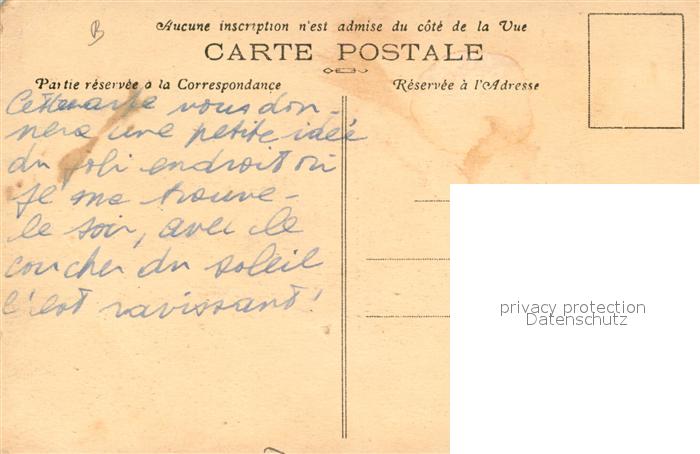 B
Aucune inscription n'est admise du côté de la Vue
CARTE POSTALE
Partie réservée à la Correspondance
Réservée à l'Adresse
Cette carte vous don-
nera une petite idée
du joli endroit où
je me trouve -
le soir, avec le
coucher du soleil
c'est ravissant!
privacy protection
Datenschutz